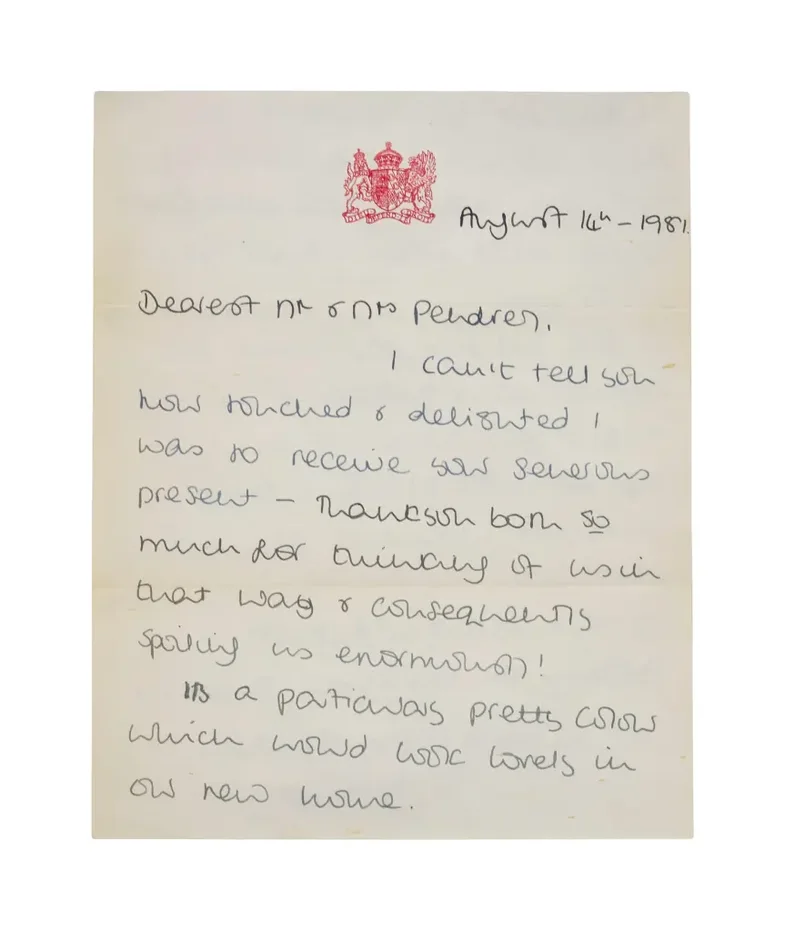 August 14th - 1981.
Dearest Mr & Mrs Pendrey,
I can't tell you
how touched & delighted I
was to receive your generous
present - Thankyou both so
much for thinking of us in
that way & consequently
spoiling us enormously!
Its a particularly pretty colour
which would look lovely in
our new home.